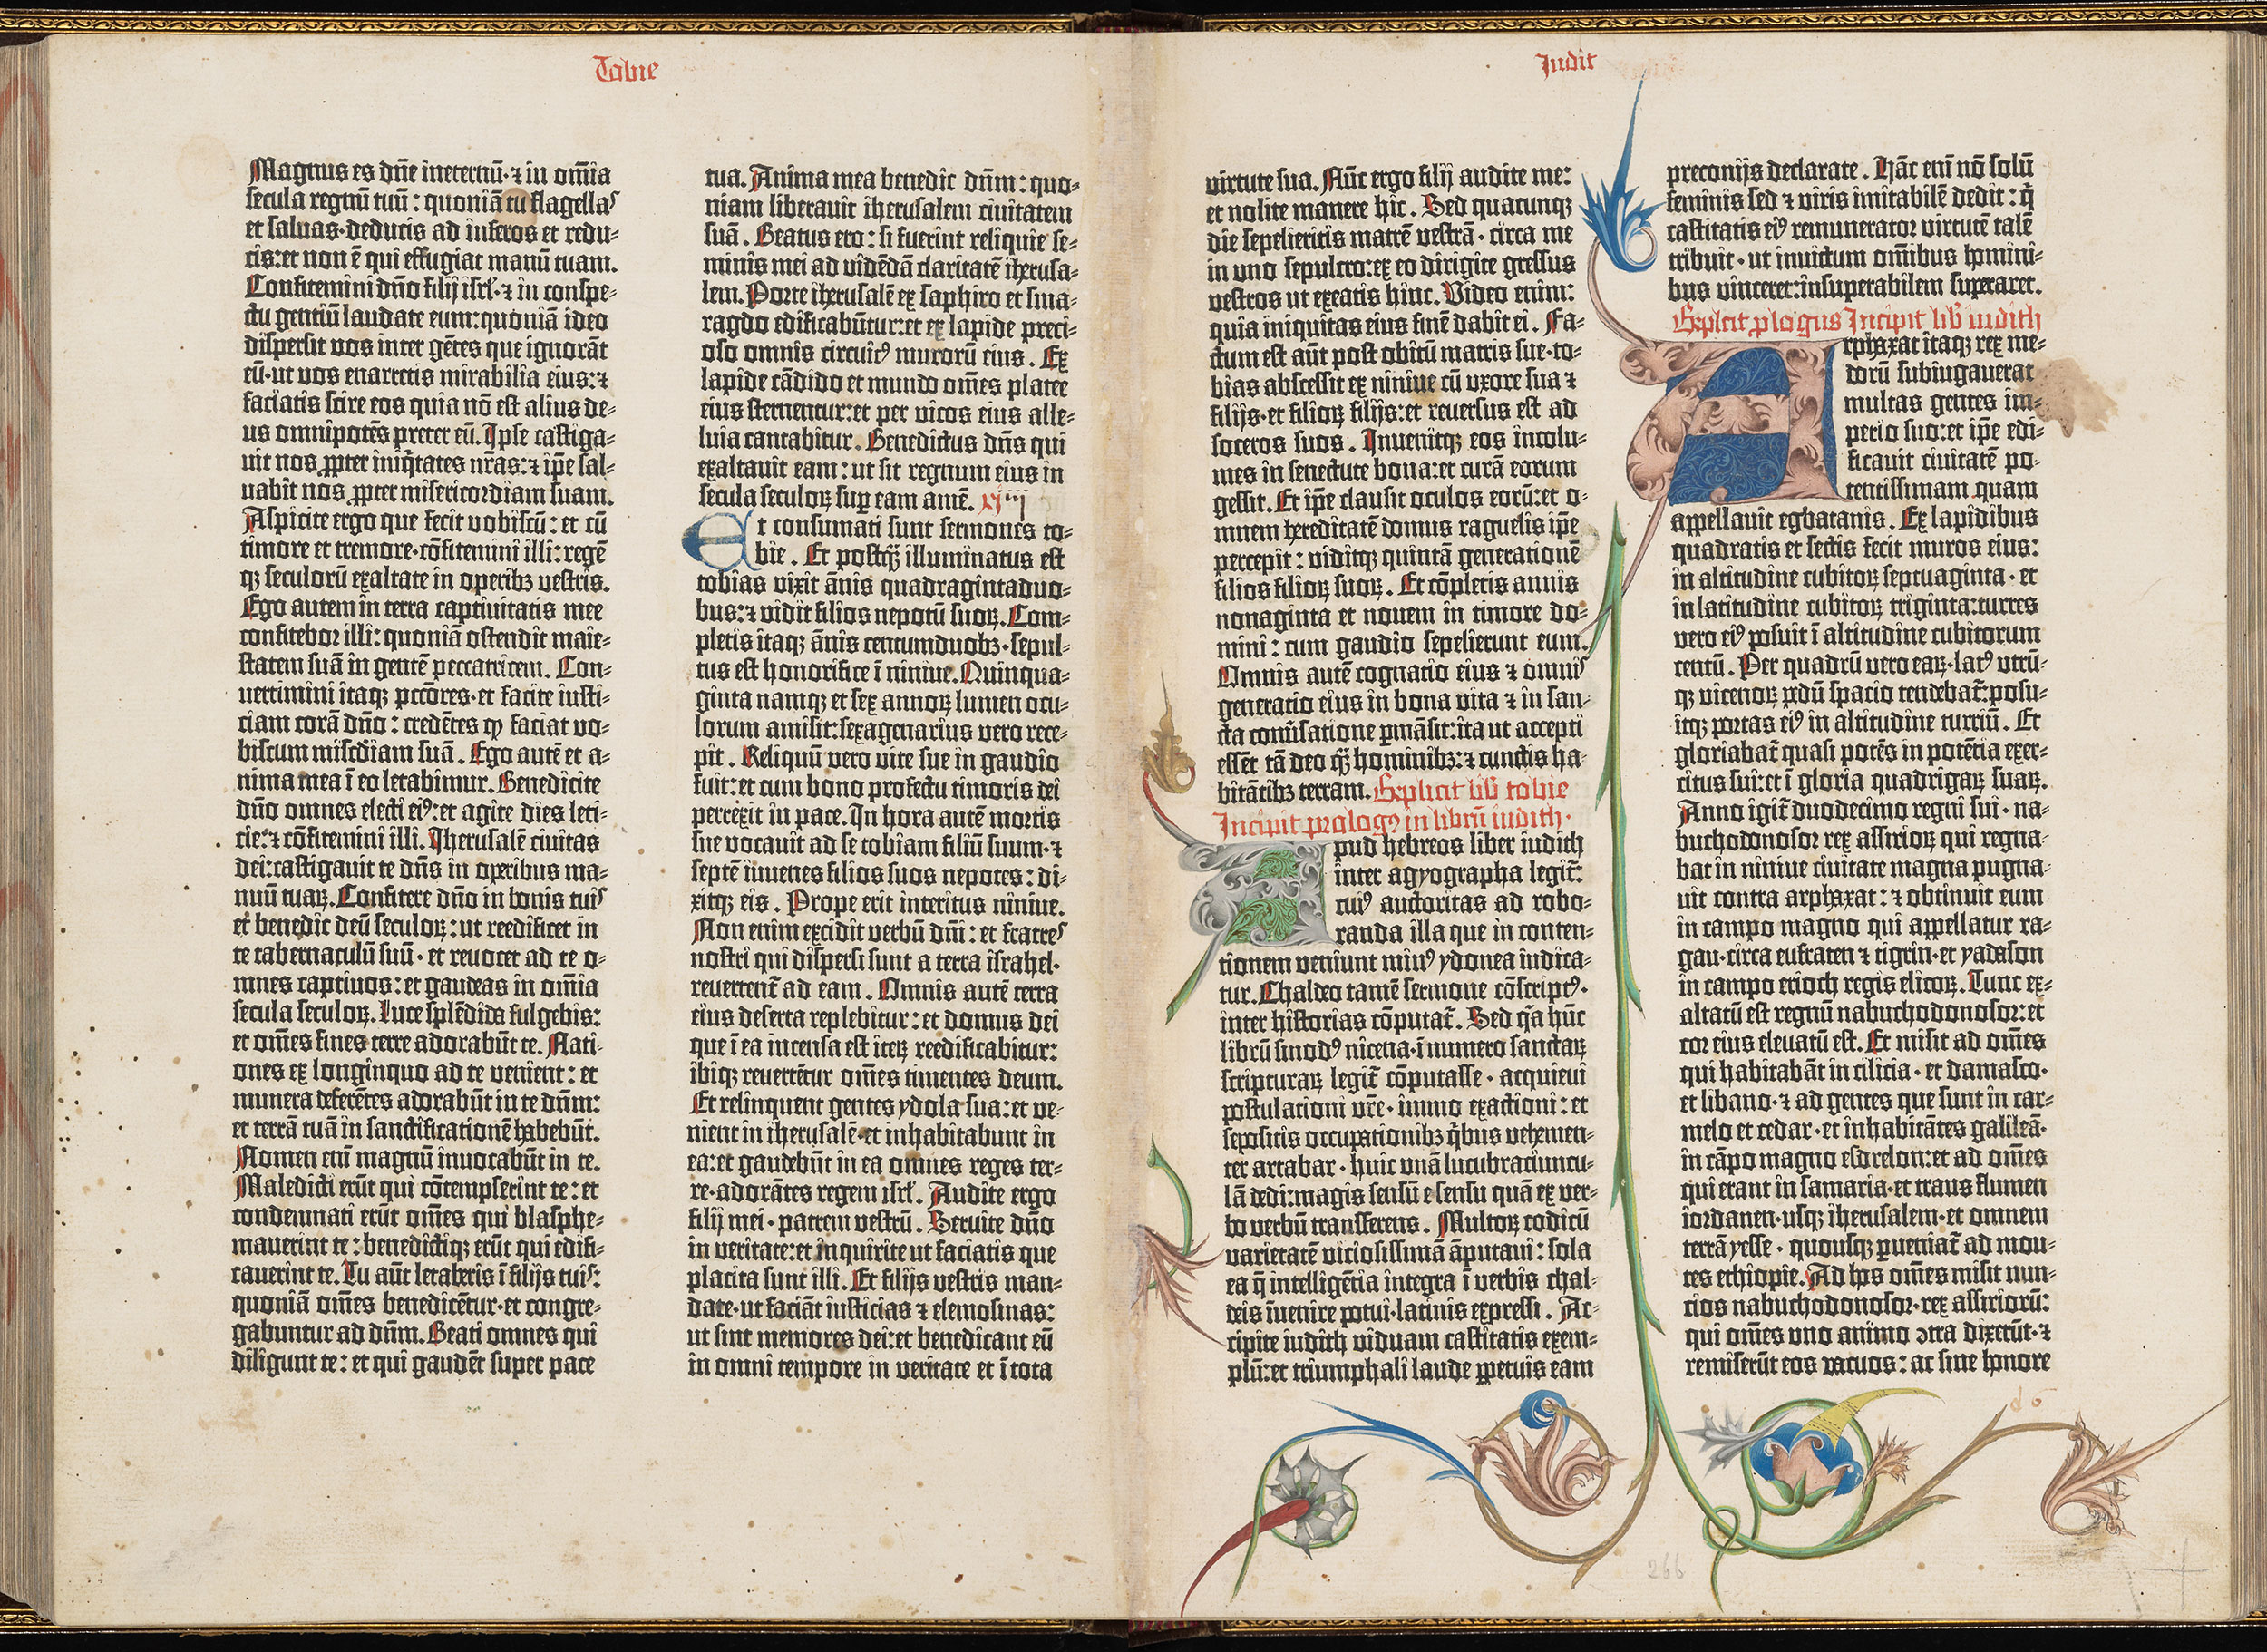 Tobie
Magnus es dñe ineternū·⁊ in om̄ia
secula regnū tuū : quoniā tu flagellas
et saluas·deducis ad inferos et redu-
cis:et non ē qui effugiat manū tuam.
Confitemini dño filij isrl·⁊ in conspe-
ctu gentiū laudate eum:quoniā ideo
dispersit vos inter gētes que ignorāt
eū·ut vos enarretis mirabilia eius:⁊
faciatis scire eos quia nō est alius de-
us omnipotēs preter eū. Ipse castiga-
uit nos ꝓpter iniq̄tates nr̄as:⁊ ip̄e sal-
uabit nos ꝓpter misericordiam suam.
Aspicite ergo que fecit vobiscū : et cū
timore et tremore·cōfitemini illi:regē
qꝫ seculorū exaltate in operibꝫ vestris.
Ego autem in terra captiuitatis mee
confitebor illi:quoniā ostendit maie-
statem suā in gentē peccatricem. Con-
uertimini itaqꝫ pcc̄ores·et facite iusti-
ciam corā dño : credētes ꝙ faciat vo-
biscum mīscdiam suā . Ego autē et a-
nima mea ī eo letabimur. Benedicite
dño omnes electi eiꝰ:et agite dies leti-
cie:⁊ cōfitemini illi. Iherusalē ciuitas
dei:castigauit te dñs in operibus ma-
nuū tuaꝝ. Confitere dño in bonis tuis
et benedic deū seculoꝝ:ut reedificet in
te tabernaculū suū · et reuocet ad te o-
mnes captiuos:et gaudeas in om̄ia
secula seculoꝝ. Luce splēdida fulgebis:
et om̄es fines terre adorabūt te. Nati-
ones ex longinquo ad te venient : et
munera deferētes adorabūt in te dūm:
et terrā tuā in sanctificationē habebūt.
Nomen eni magnū inuocabūt in te.
Maledicti erūt qui cōtempserint te: et
condemnati erūt om̄es qui blasphe-
mauerint te : benedictiqꝫ erūt qui edifi-
cauerint te. Tu aūt letaberis ī filijs tuis:
quoniā om̄es benedicētur·et congre-
gabuntur ad dūm. Beati omnes qui
diligunt te : et qui gaudēt super pace
tua. Anima mea benedic dūm : quo-
niam liberauit iherusalem ciuitatem
suā . Beatus ero : si fuerint reliquie se-
minis mei ad vidēdā claritatē iherusa-
lem. Porte iherusalē ex saphiro et sma-
ragdo edificabūtur:et ex lapide preci-
oso omnis circuitꝰ murorū eius . Ex
lapide cādido et mundo om̄es platee
eius sternentur:et per vicos eius alle-
luia cantabitur . Benedictus dñs qui
exaltauit eam : ut sit regnum eius in
secula seculoꝝ suꝑ eam amē. xiiij
Et consumati sunt sermones to-
bie . Et postꝙ̄ illuminatus est
tobias vixit ānis quadragintaduo-
bus:⁊ vidit filios nepotū suoꝝ. Com-
pletis itaqꝫ ānis centumduobꝫ·sepul-
tus est honorifice ī niniue. Quinqua-
ginta namqꝫ et sex annoꝝ lumen ocu-
lorum amisit:sexagenarius vero rece-
pit . Reliquū vero vite sue in gaudio
fuit:et cum bono profectu timoris dei
perrexit in pace. In hora autē mortis
sue vocauit ad se tobiam filiū suum·⁊
septē iuuenes filios suos nepotes : di-
xitqꝫ eis . Prope erit interitus niniue.
Non enim excidit verbū dñi : et fratres
nostri qui dispersi sunt a terra israhel·
reuertent̄ ad eam . Omnis autē terra
eius deserta replebitur : et domus dei
que ī ea incensa est iteꝝ reedificabitur:
ibiqꝫ reuertētur om̄es timentes deum.
Et relinquent gentes ydola sua:et ve-
nient in iherusalē·et inhabitabunt in
ea:et gaudebūt in ea omnes reges ter-
re·adorātes regem isrl . Audite ergo
filij mei · patrem vestrū . Seruite dño
in veritate:et inquirite ut faciatis que
placita sunt illi. Et filijs vestris man-
date·ut faciāt iusticias ⁊ elemosinas:
ut sint memores dei:et benedicant eū
in omni tempore in veritate et ī tota
Iudit
virtute sua. Nūc ergo filij audite me:
et nolite manere hic . Sed quacunqꝫ
die sepelieritis matrē vestrā · circa me
in uno sepulcro:ex eo dirigite gressus
vestros ut exeatis hinc. Video enim:
quia iniquitas eius finē dabit ei . Fa-
ctum est aūt post obitū matris sue·to-
bias abscessit ex niniue cū vxore sua ⁊
filijs·et filioꝝ filijs:et reuersus est ad
soceros suos . Inuenitqꝫ eos incolu-
mes in senectute bona:et curā eorum
gessit. Et ip̄e clausit oculos eorū:et o-
mnem hereditatē domus raguelis ip̄e
percepit : viditqꝫ quintā generationē
filios filioꝝ suoꝝ . Et cōpletis annis
nonaginta et nouem in timore do-
mini : cum gaudio sepelierunt eum.
Omnis autē cognatio eius ⁊ omnis
generatio eius in bona vita ⁊ in san-
cta conūsatione ꝑmāsit:ita ut accepti
essēt tā deo ꝙ̄ hominibꝫ:⁊ cunctis ha-
bitātibꝫ terram. Explicit lib̄ tobie
Incipit prologꝰ in librū iudith·
Apud hebreos liber iudith
inter agyographa legit̄:
cuiꝰ auctoritas ad robo-
randa illa que in conten-
tionem veniunt minꝰ ydonea iudica-
tur. Chaldeo tamē sermone cōscriptꝰ·
inter historias cōputat̄ . Sed q̄a hūc
librū sinodꝰ nicena·ī numero sanctaꝝ
scripturaꝝ legit̄ cōputasse · acquieui
postulationi vr̄e · immo exactioni : et
sepositis occupationibꝫ q̄bus vehemen-
ter artabar · huic unā lucubraciuncu-
lā dedi:magis sensū e sensu quā ex ver-
bo verbū transferens . Multoꝝ codicū
varietatē viciosissimā āputaui : sola
ea q̄ intelligētia integra ī verbis chal-
deis īuenire potui·latinis expressi . Ac-
cipite iudith viduam castitatis exem-
plū:et triumphali laude ꝑpetuis eam
preconijs declarate . Hāc eni nō solū
feminis sed ⁊ viris imitabilē dedit : q̄
castitatis eiꝰ remunerator virtutē talē
tribuit · ut inuictum om̄ibus homini-
bus vinceret:insuperabilem superaret.
Explicit ꝓlogus Incipit lib̄ iudith
Arphaxat itaqꝫ rex me-
dorū subiugauerat
multas gentes im-
perio suo:et ip̄e edi-
ficauit ciuitatē po-
tentissimam quam
appellauit egbatanis . Ex lapidibus
quadratis et sectis fecit muros eius:
in altitudine cubitoꝝ septuaginta · et
in latitudine cubitoꝝ triginta:turres
vero eiꝰ posuit ī altitudine cubitorum
centū . Per quadrū vero eaꝝ·latꝰ vtrū-
qꝫ vicenoꝝ pdū spacio tendebat̄:posu-
itqꝫ portas eiꝰ in altitudine turriū . Et
gloriabat̄ quasi potēs in potētia exer-
citus sui:et ī gloria quadrigaꝝ suaꝝ.
Anno igit̄ duodecimo regni sui · na-
buchodonosor rex assirioꝝ qui regna-
bat in niniue ciuitate magna pugna-
uit contra arphaxat : ⁊ obtinuit eum
in campo magno qui appellatur ra-
gau·circa eufraten ⁊ tigrin·et yadason
in campo erioch regis elicoꝝ. Tunc ex-
altatū est regnū nabuchodonosor:et
cor eius eleuatū est. Et misit ad om̄es
qui habitabāt in cilicia · et damasco·
et libano·⁊ ad gentes que sunt in car-
melo et cedar·et inhabitātes galileā·
in cāpo magno esdrelon:et ad om̄es
qui erant in samaria·et trans flumen
iordanen·usqꝫ iherusalem·et omnem
terrā yesse · quousqꝫ ꝑueniat̄ ad mon-
tes ethiopie. Ad hos om̄es misit nun-
cios nabuchodonosor·rex assiriorū:
qui om̄es uno animo ꝯtra dixerūt·⁊
remiserūt eos vacuos : ac sine honore
266